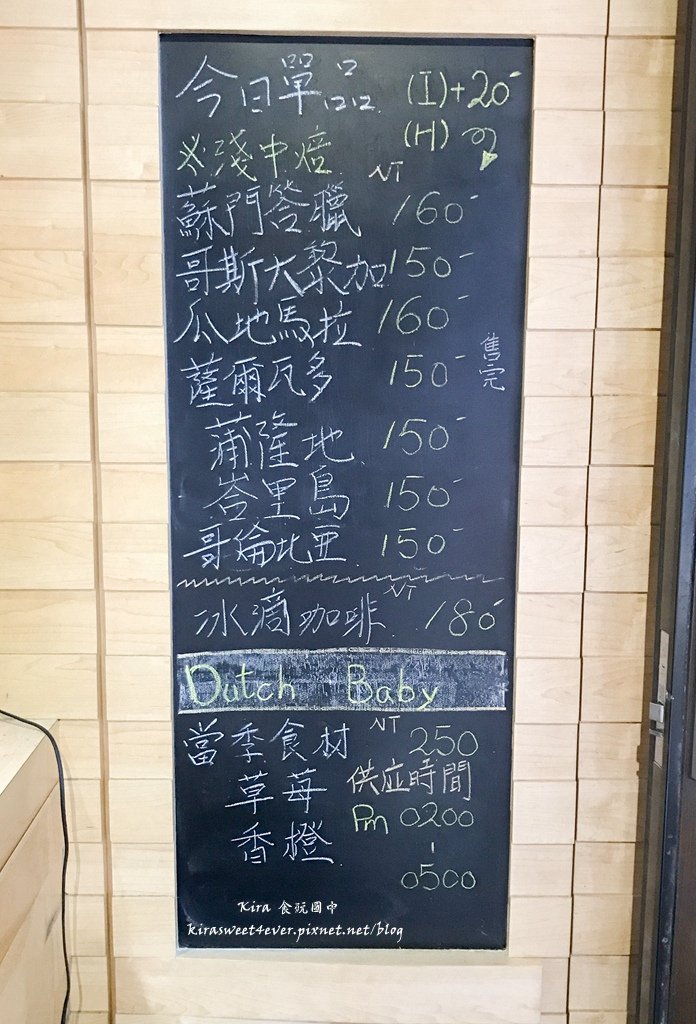 今日單品 (I)+20-
※淺中焙 (H)
NT
蘇門答臘 160-
哥斯大黎加 150-
瓜地馬拉 160-
薩爾瓦多 150- 售完
蒲隆地 150-
峇里島 150-
哥倫比亞 150-
NT
冰滴咖啡 180-
Dutch Baby
當季食材 NT 250
草莓 供应時間
香橙 Pm 0200
-
0500
Kira 食玩國中
kirasweet4ever.pixnet.net/blog